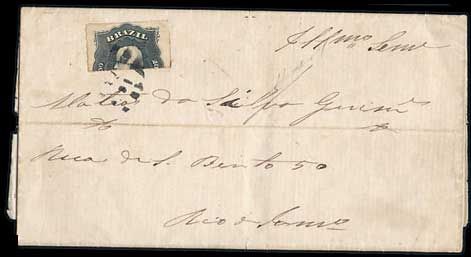 BRAZIL
Illmo Senr
Matos da Silva
Rua de S. Bento 50
Rio de Janro